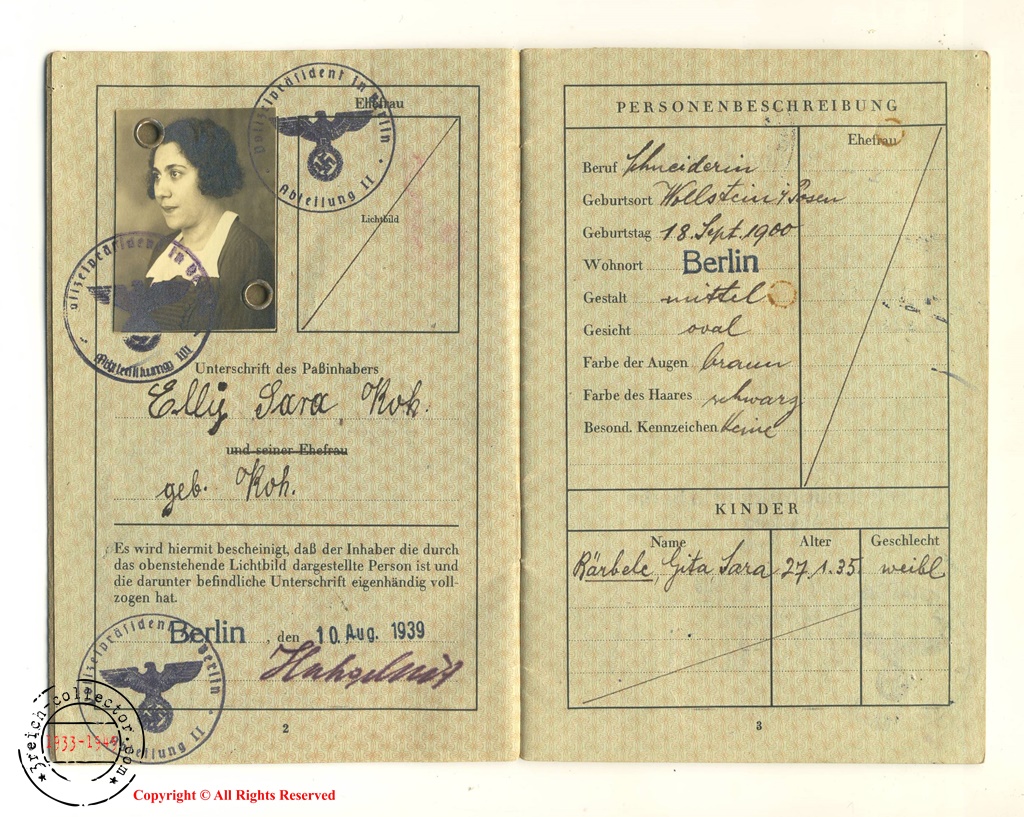 Ehefrau
Polizeipräsident in Berlin
Abteilung II
Lichtbild
Unterschrift des Paßinhabers
Elly Sara Koh.
und seiner Ehefrau
geb. Koh.
Es wird hiermit bescheinigt, daß der Inhaber die durch
das obenstehende Lichtbild dargestellte Person ist und
die darunter befindliche Unterschrift eigenhändig voll-
zogen hat.
Berlin , den 10. Aug. 1939
Polizeipräsident in Berlin
Abteilung II
2
PERSONENBESCHREIBUNG
Ehefrau
Beruf Schneiderin
Geburtsort Wollstein i/Posen
Geburtstag 18. Sept. 1900
Wohnort Berlin
Gestalt mittel
Gesicht oval
Farbe der Augen braun
Farbe des Haares schwarz
Besond. Kennzeichen keine
KINDER
Name Alter Geschlecht
Bärbele, Gita Sara 27.1.35 weibl
3
3reich-collector.com
1933-1945
Copyright © All Rights Reserved